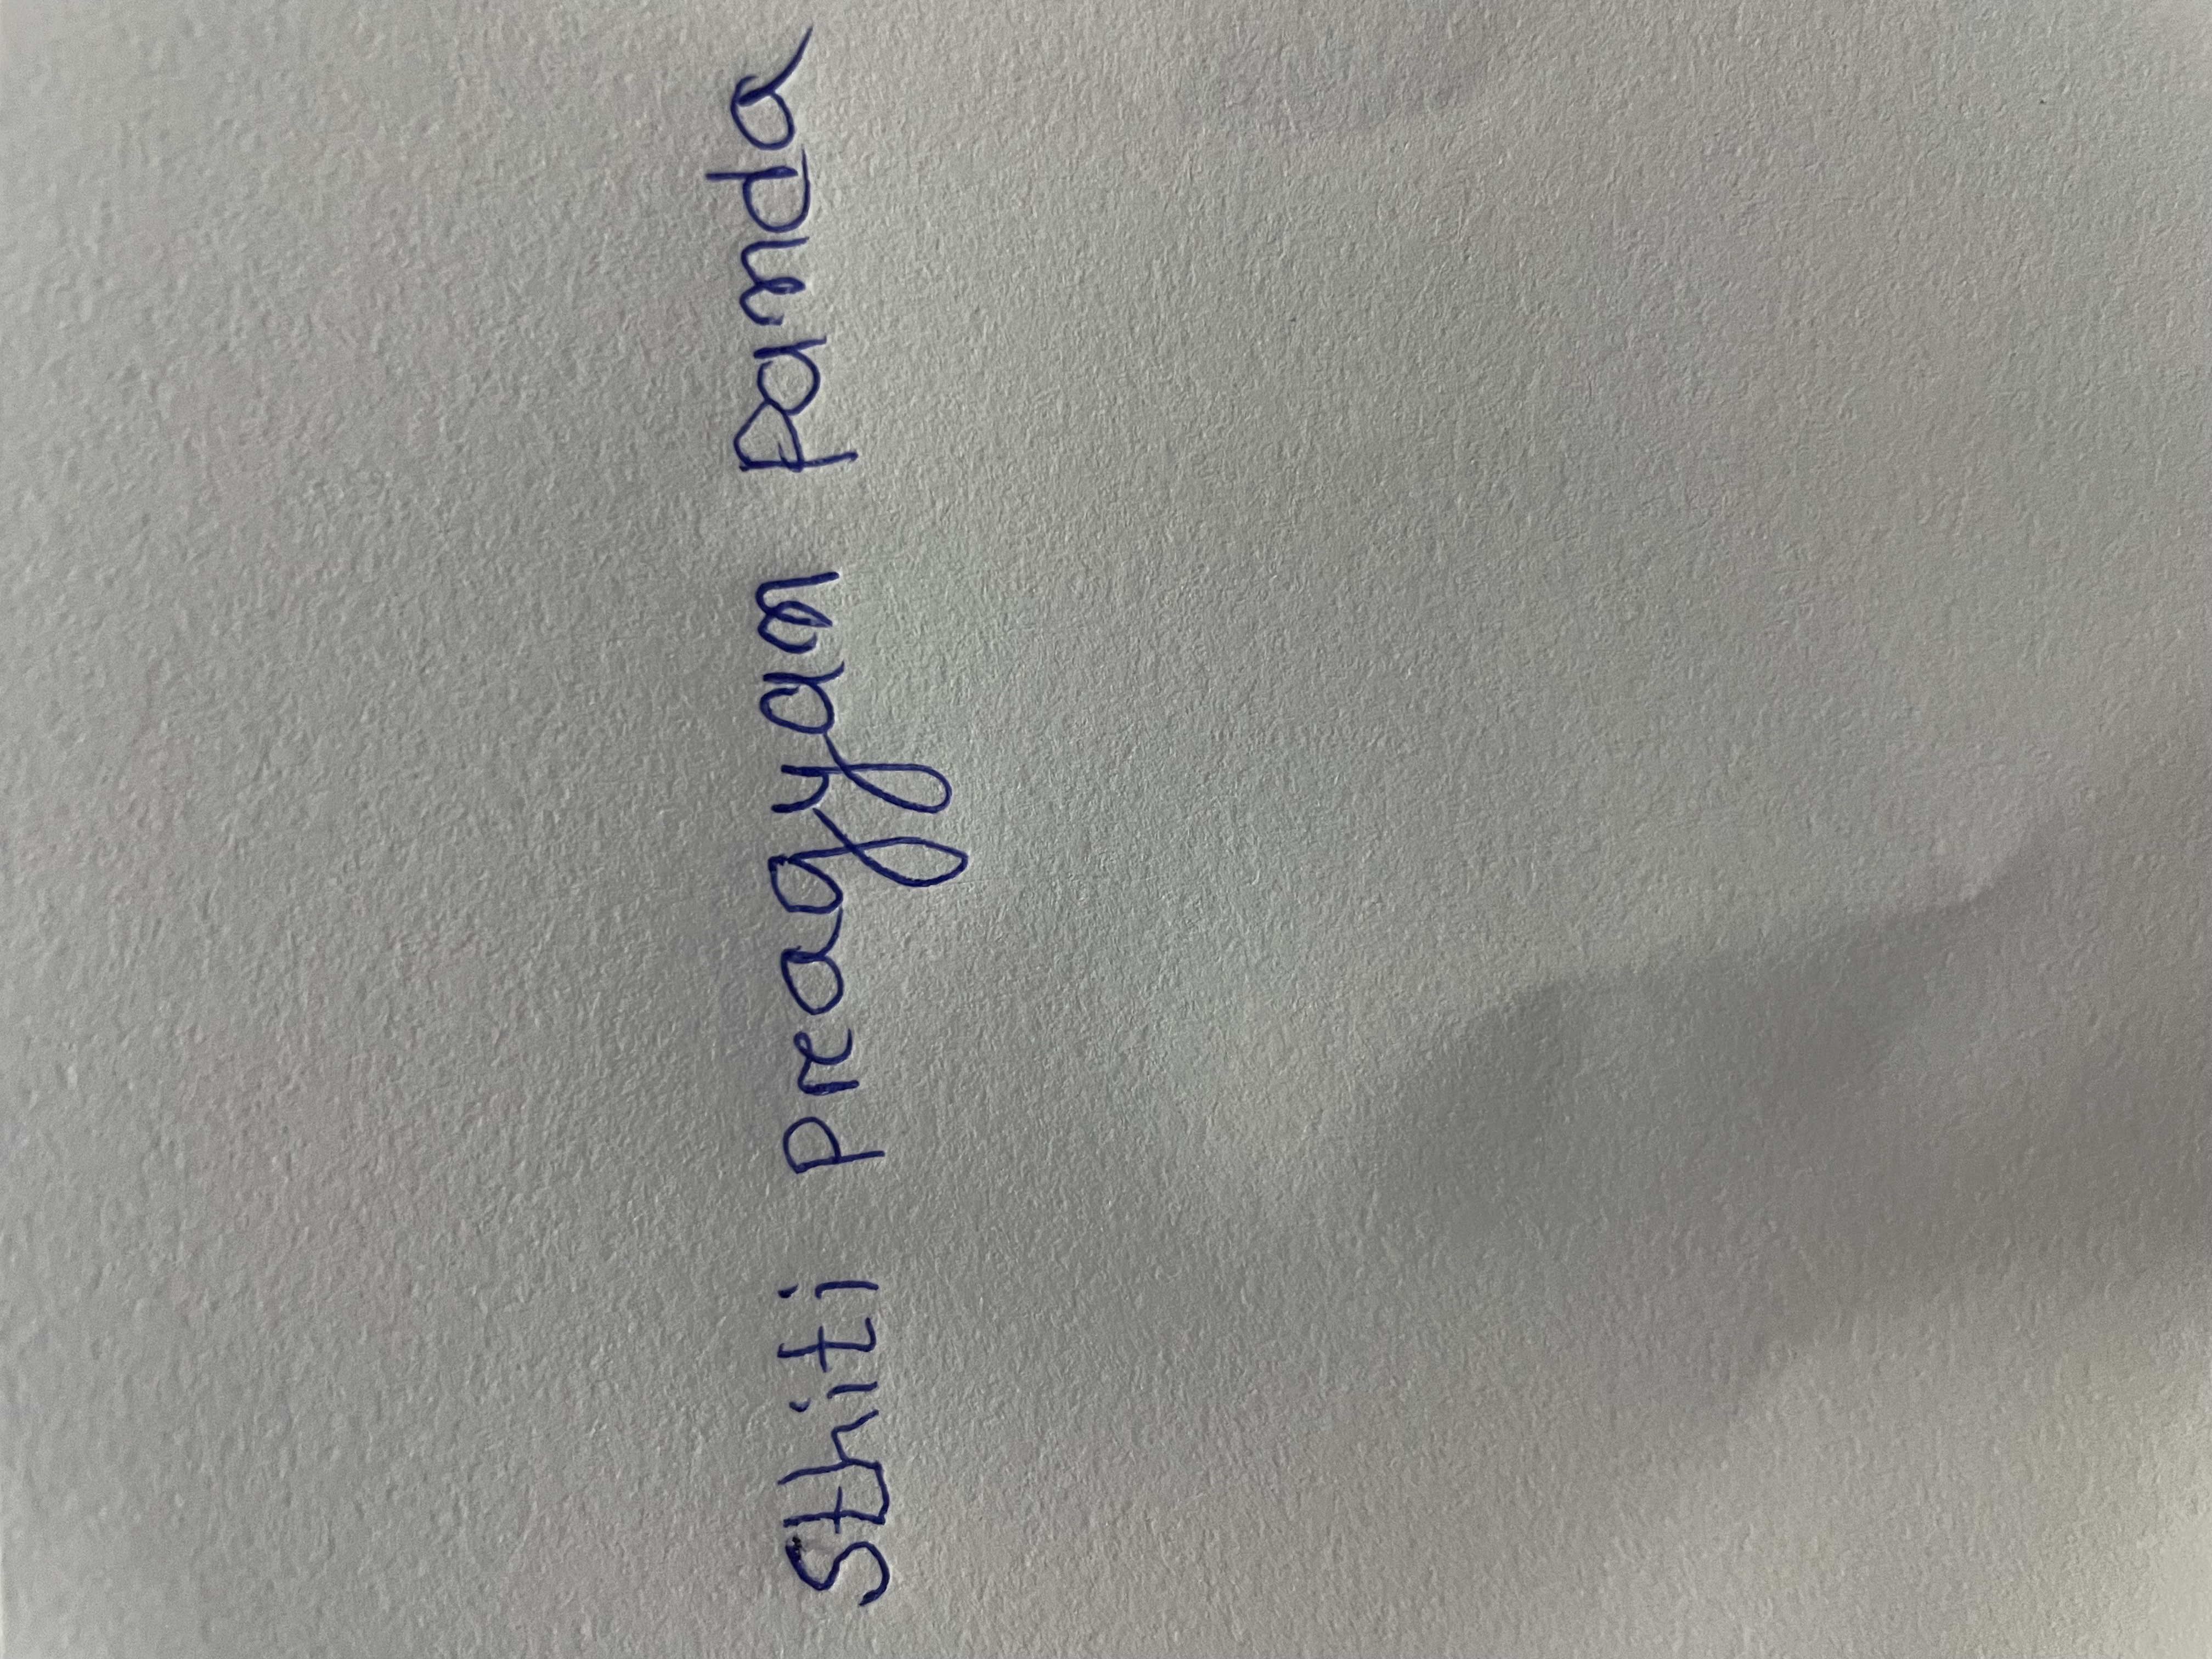 Sthiti pragyan panda